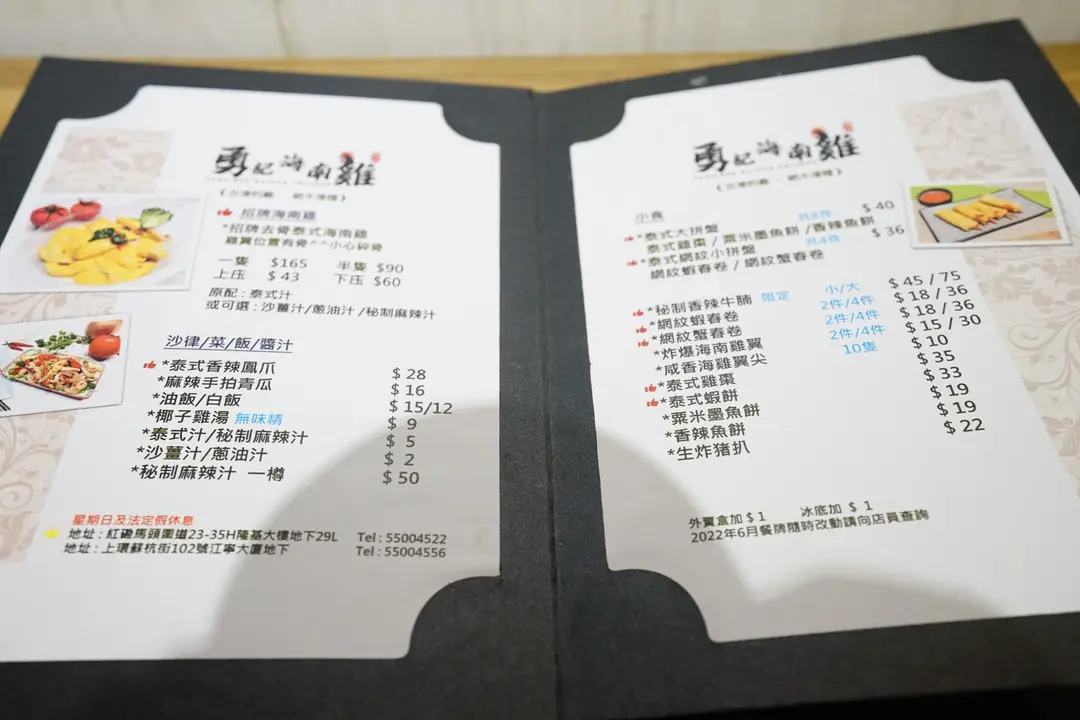 勇記海南雞
招牌海南雞
*招牌去骨泰式海南雞
雞翼位置有骨^^小心碎骨
一隻 $165 半隻 $90
上庄 $43 下庄 $60
原配:泰式汁
或可選:沙薑汁/蔥油汁/秘制麻辣汁
沙律/菜/飯/醬汁
*泰式香辣鳳爪 $28
*麻辣手拍青瓜 $16
*油飯/白飯 $15/12
*椰子雞湯 無味精 $9
*泰式汁/秘制麻辣汁 $5
*沙薑汁/蔥油汁 $2
*秘制麻辣汁 一樽 $50
星期日及法定假休息
地址:紅磡馬頭圍道23-35H隆基大樓地下29L Tel:55004522
地址:上環蘇杭街102號江寧大廈地下 Tel:55004556
勇記海南雞
小食
*泰式大拼盤 共8件 $40
泰式雞棗/粟米墨魚餅/香辣魚餅
*泰式網紋小拼盤 共4件 $36
網紋蝦春卷/網紋蟹春卷
小/大
*秘制香辣牛腩 限定 $45/75
*網紋蝦春卷 2件/4件 $18/36
*網紋蟹春卷 2件/4件 $18/36
*炸爆海南雞翼 2件/4件 $15/30
*咸香海雞翼尖 10隻 $10
*泰式雞棗 $35
*泰式蝦餅 $33
*粟米墨魚餅 $19
*香辣魚餅 $19
*生炸豬扒 $22
外賣盒加$1 冰底加$1
2022年6月餐牌隨時改動請向店員查詢